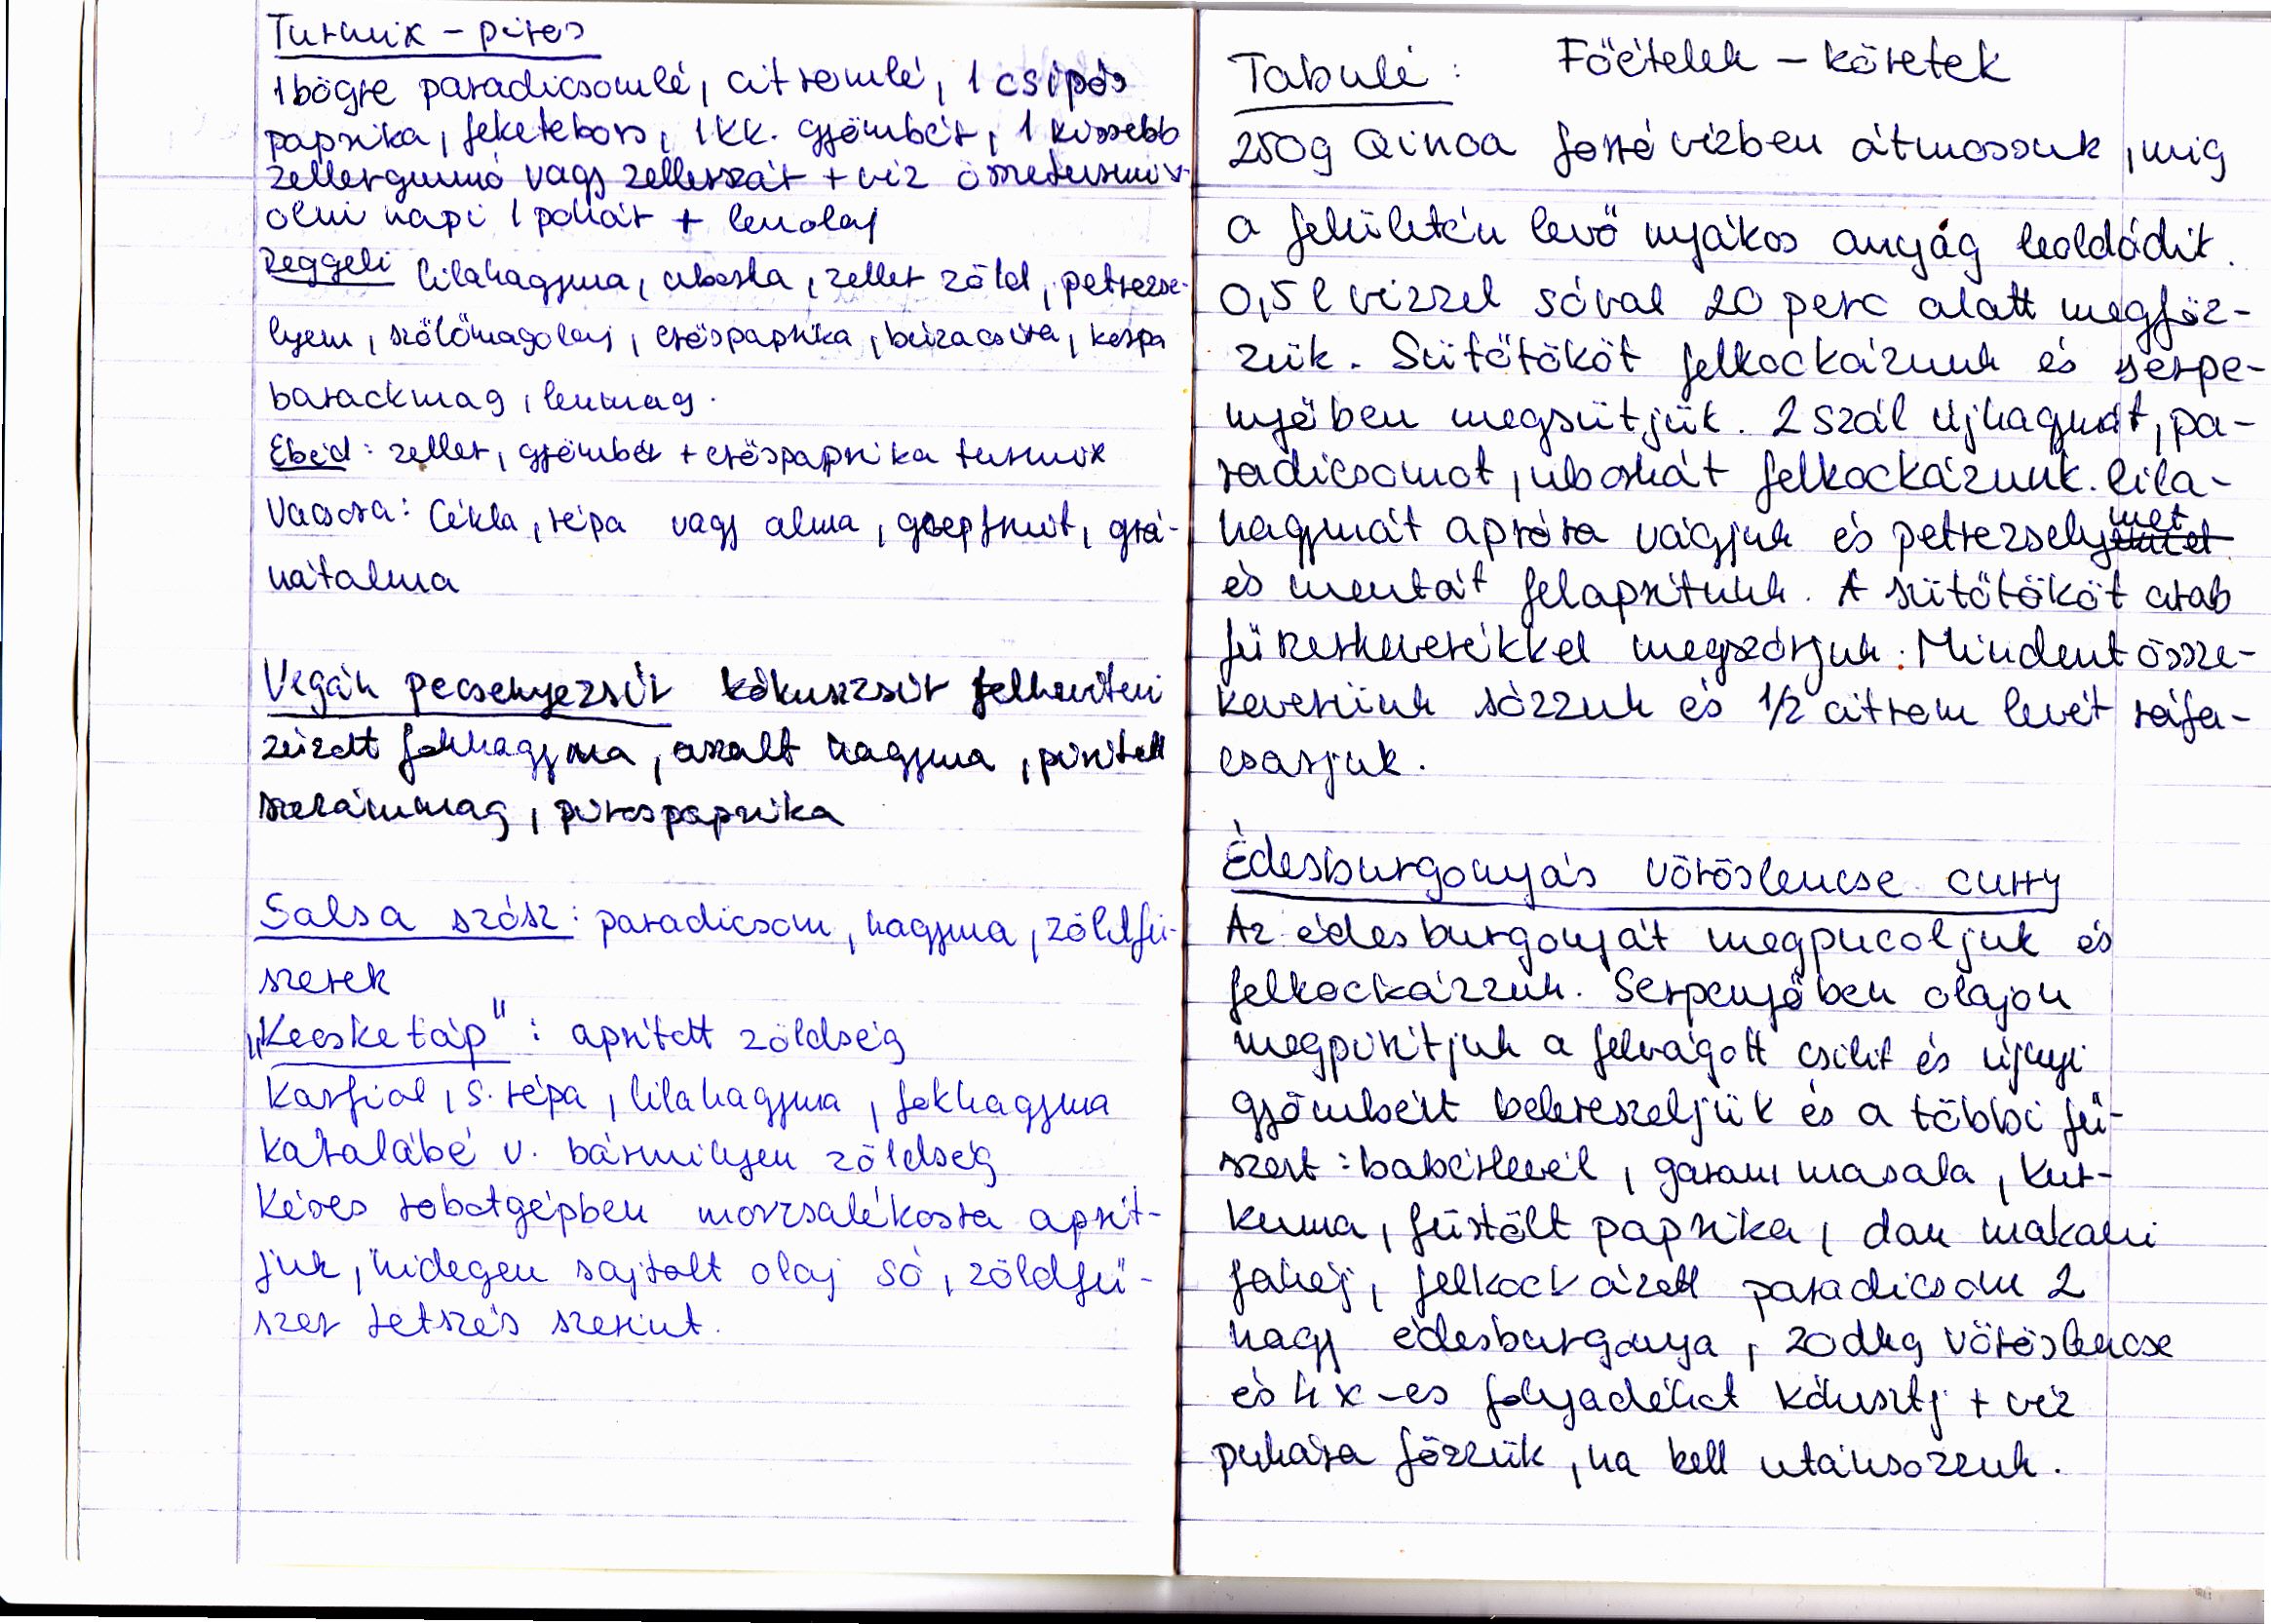 Turmix – piros
1 bögre paradicsomlé, citromlé, 1 csípős
paprika, feketebors, 1 kk. gyömbér, 1 kissebb
zellergumó vagy zellerszár + víz összeturmix-
olni napi 1 pohár + lenolaj
Reggeli lilahagyma, uborka, zeller zöld, petrezse-
lyem, szőlőmagolaj, erőspaprika, búzacsíra, kespa
barackmag, lenmag.
Ebéd: zeller, gyömbér + erőspaprika turmix
Vacsora: Cékla, répa vagy alma, grepfruit, grá-
nátalma
Vegán pecsenyezsír kókuszzsír felhevíteni
zúzott fokhagyma, aszalt hagyma, pirított
szezámmag, pirospaprika
Salsa szósz: paradicsom, hagyma, zöldfű-
szerek
„Kecsketáp": aprított zöldség
Karfiol, s. répa, lilahagyma, fokhagyma
karalábé v. bármilyen zöldség
Késes robotgépben morzsalékosra aprít-
juk, hidegen sajtolt olaj só, zöldfű-
szer tetszés szerint.
Főételek – köretek
Tabulé:
250g Qinoa forró vízben átmossuk, míg
a felületén levő nyákos anyág leoldódik.
0,5 l vízzel sóval 20 perc alatt megfőz-
zük. Sütőtököt felkockázunk és serpe-
nyőben megsütjük. 2 szál újhagymát, pa-
radicsomot, uborkát felkockázunk. lila-
hagymát apróra vágjuk és petrezselymet
és mentát felaprítunk. A sütőtököt arab
fűszerkeverékkel megszórjuk. Mindent össze-
keverünk sózzuk és 1/2 citrom levét ráfa-
csarjuk.
Édesburgonyás vöröslencse curry
Az édesburgonyát megpucoljuk és
felkockázzuk. Serpenyőben olajon
megpirítjuk a felvágott csilit és újnyi
gyömbért belereszeljük és a többi fű-
szert: babérlevél, garam masala, kur-
kuma, füstölt paprika, dan makani
fahéj, felkockázott paradicsom 2
nagy édesburgonya, 20dkg vöröslencse
és 4x-es folyadékot kókusztj + víz
puhára főzzük, ha kell utánsózzuk.